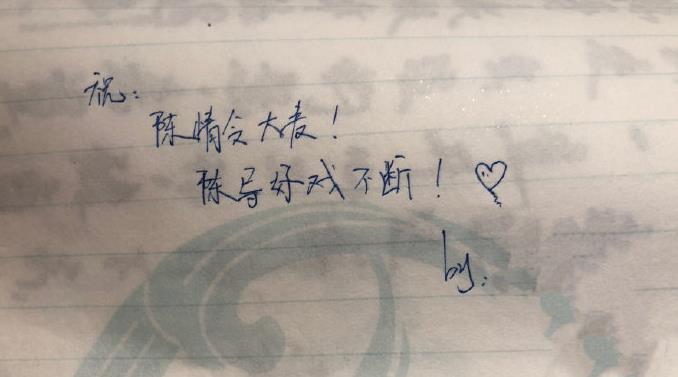 祝:
陈情令大麦!
陈导好戏不断!
by: